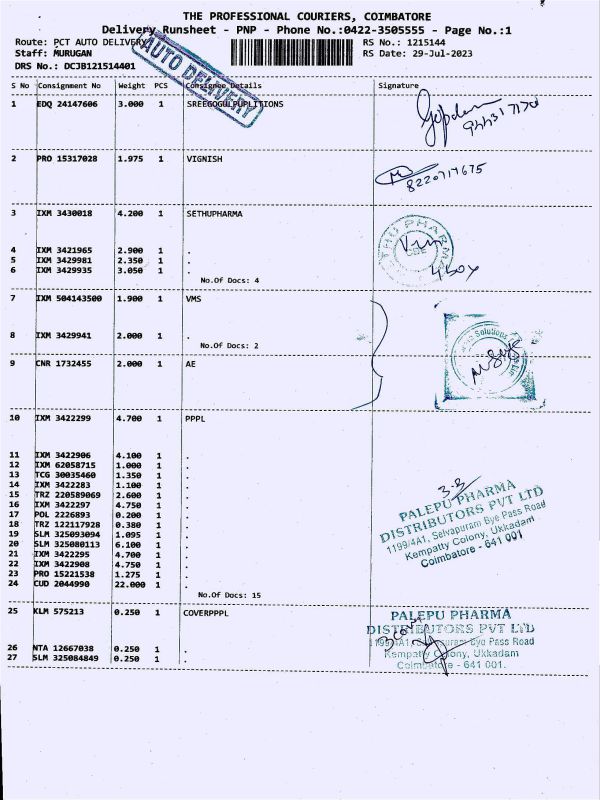 THE PROFESSIONAL COURIERS, COIMBATORE
Delivery Runsheet - PNP - Phone No.:0422-3505555 - Page No.:1
Route: PCT AUTO DELIVERY
RS No.: 1215144
Staff: MURUGAN
RS Date: 29-Jul-2023
DRS No.: DCJB121514401
AUTO DELIVERY
S No Consignment No Weight PCS Consignee Details Signature
1 EDQ 24147606 3.000 1 SREEGOGULPUPLITIONS
944317170
2 PRO 15317028 1.975 1 VIGNISH
8220717675
3 IXM 3430018 4.200 1 SETHUPHARMA
4 IXM 3421965 2.900 1 .
5 IXM 3429981 2.350 1 .
6 IXM 3429935 3.050 1 .
No.Of Docs: 4
4 Box
7 IXM 504143500 1.900 1 VMS
8 IXM 3429941 2.000 1 .
No.Of Docs: 2
9 CNR 1732455 2.000 1 AE
10 IXM 3422299 4.700 1 PPPL
11 IXM 3422906 4.100 1 .
12 IXM 62058715 1.000 1 .
13 TCG 30035460 1.350 1 .
14 IXM 3422283 1.100 1 .
15 TRZ 220589069 2.600 1 .
16 IXM 3422297 4.750 1 .
17 POL 2226893 0.200 1 .
18 TRZ 122117928 0.380 1 .
19 SLM 325093094 1.095 1 .
20 SLM 325080113 6.100 1 .
21 IXM 3422295 4.700 1 .
22 IXM 3422908 4.750 1 .
23 PRO 15221538 1.275 1 .
24 CUD 2044990 22.000 1 .
No.Of Docs: 15
PALEPU PHARMA
DISTRIBUTORS PVT LTD
1199/4A1, Selvapuram Bye Pass Road
Kempatty Colony, Ukkadam
Coimbatore - 641 001
25 KLM 575213 0.250 1 COVERPPPL
26 NTA 12667038 0.250 1 .
27 SLM 325084849 0.250 1 .
PALEPU PHARMA
DISTRIBUTORS PVT LTD
1199/4A1, Selvapuram Bye Pass Road
Kempatty Colony, Ukkadam
Coimbatore - 641 001.